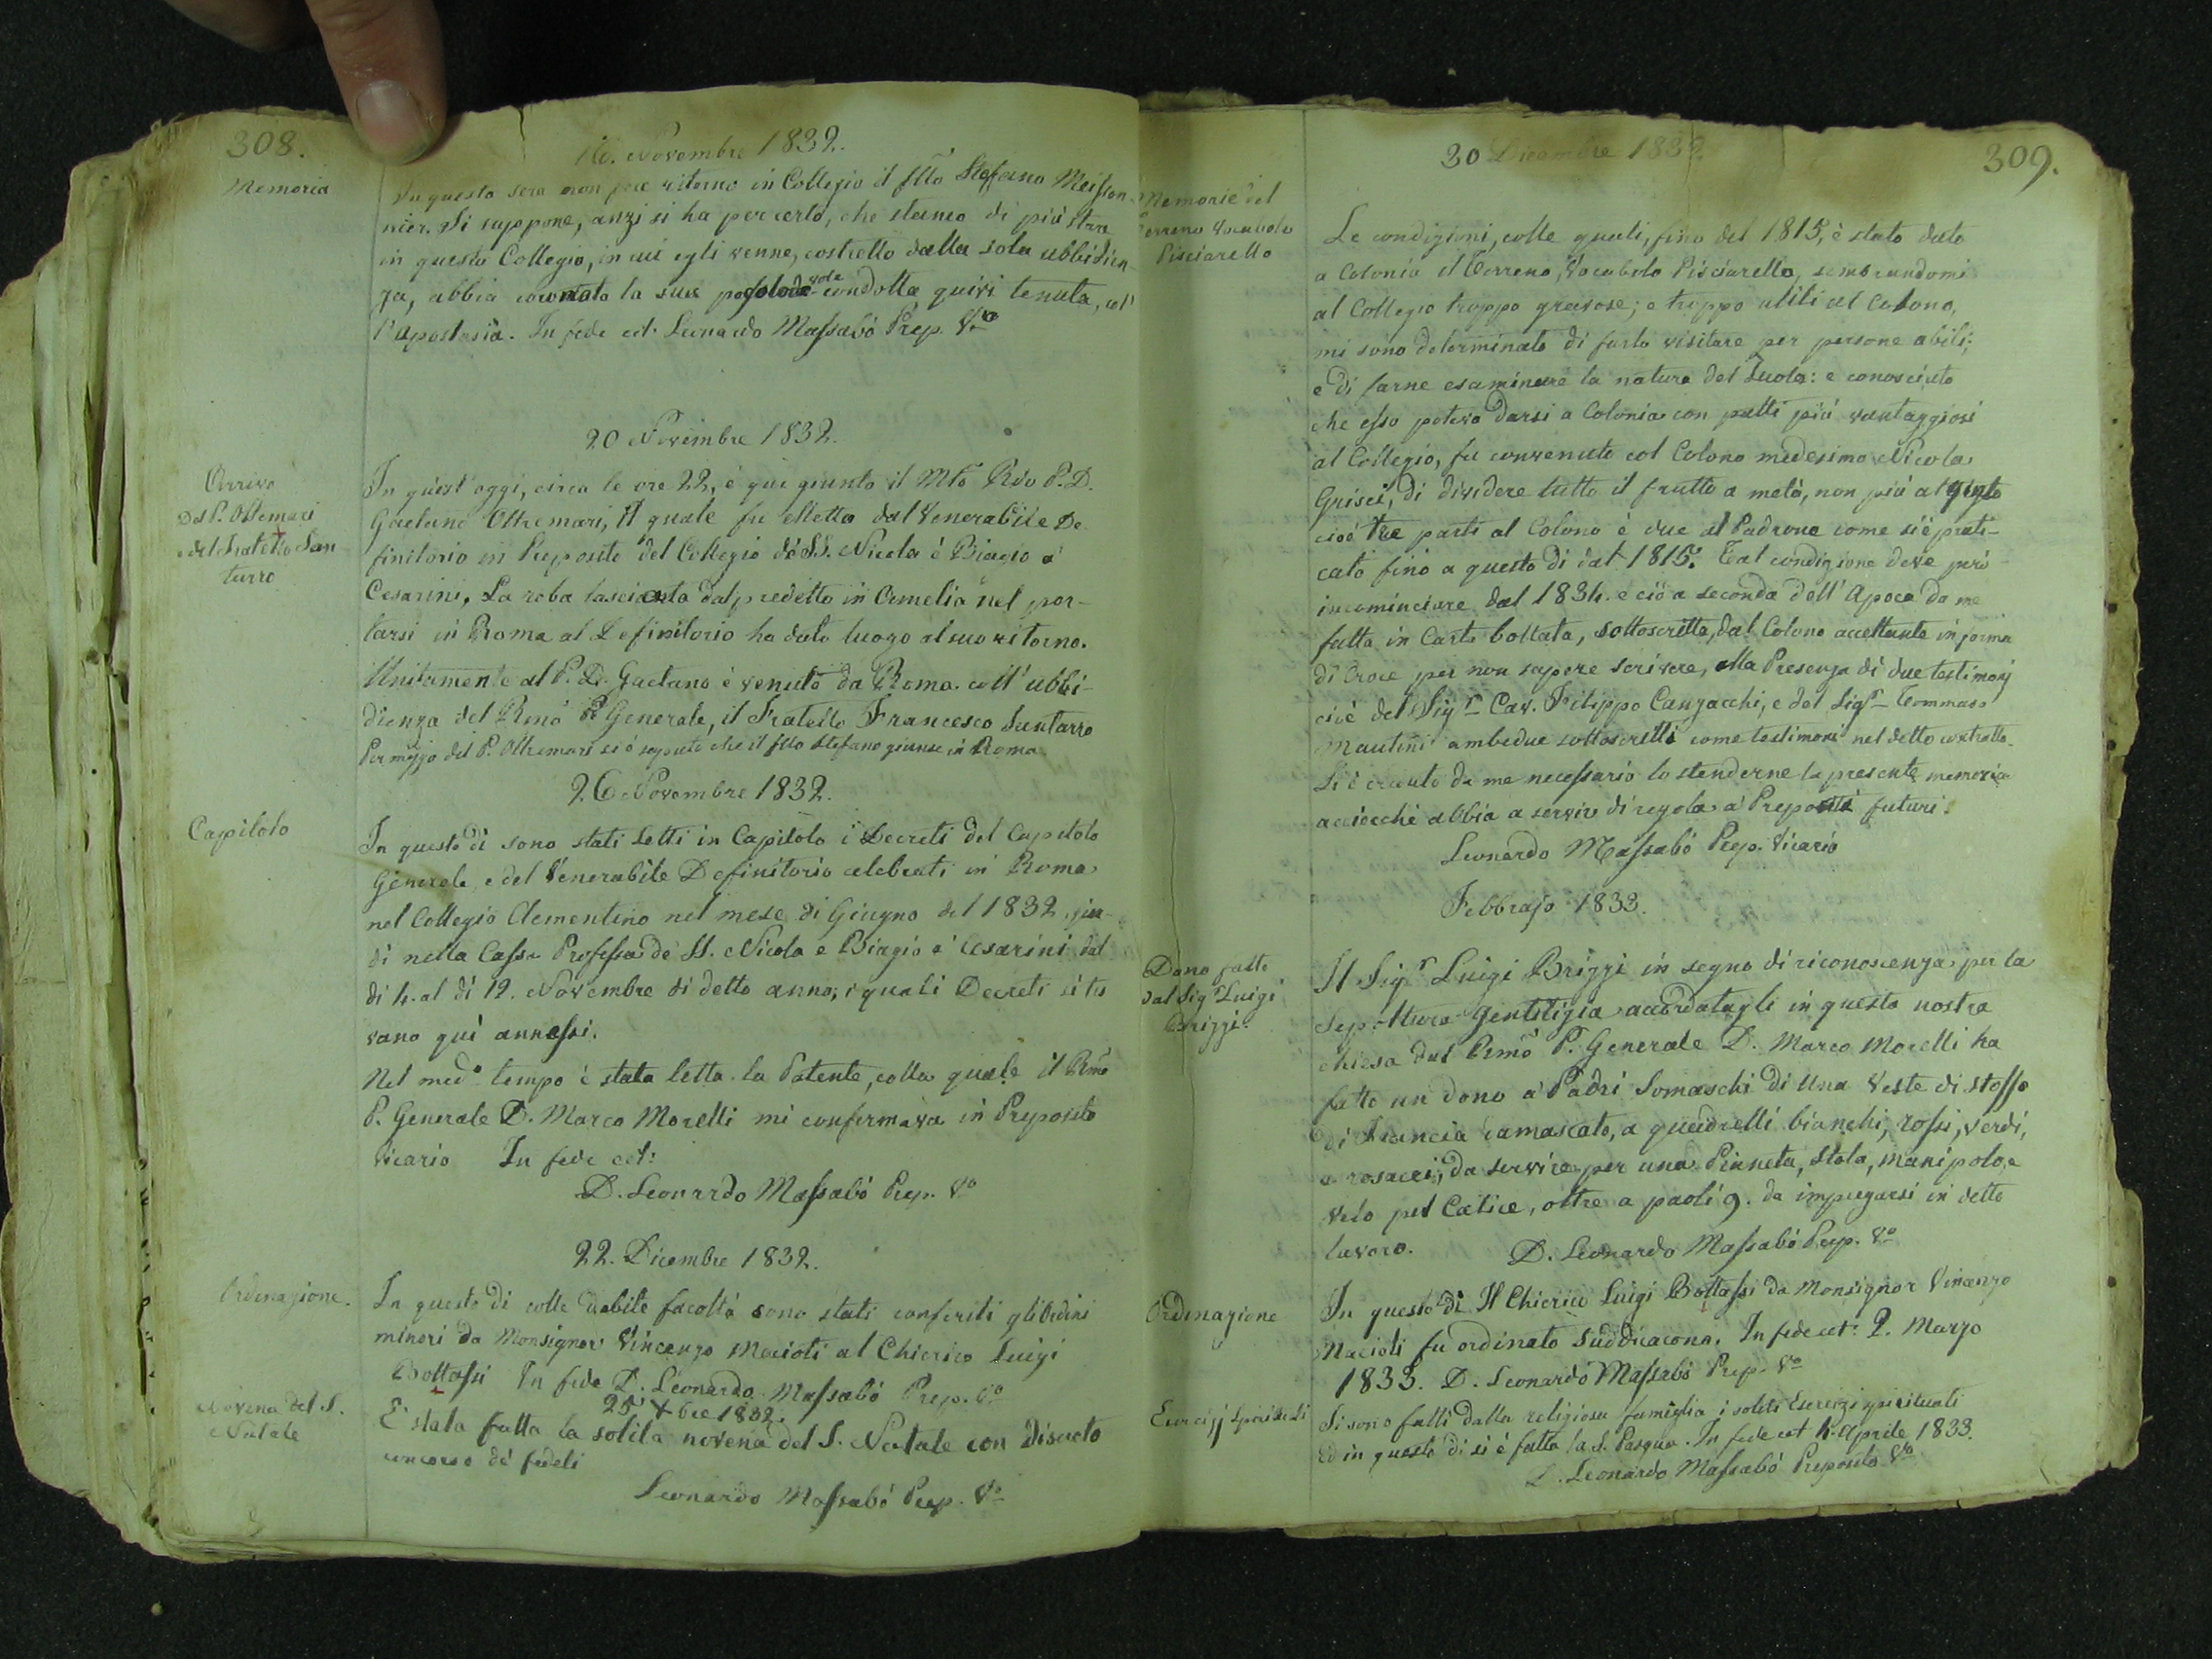 308.
16. Novembre 1832.
Memoria
In questa sera non fece ritorno in Collegio il Fllo Stefano Meisson-
nier. Si suppone, anzi si ha per certo, che stanco di più stare
in questo Collegio, in cui egli venne, costretto dalla sola ubbidien-
za, abbia coronato la sua poco lodevole condotta quivi tenuta, coll'
l'apostasia. In fede cet. Leonardo Massabò Prep. Vrio
20 Novembre 1832.
Arrivo
Del P. Oltremari
e del Fratello San
tarro
In quest'oggi, circa le ore 22, è qui giunto il Mto Rdo P. D.
Gaetano Oltremari, il quale fu eletto dal Venerabile De-
finitorio in Preposito del Collegio de' SS. Nicola è Biagio a'
Cesarini, La roba lasciata dal predetto in Amelia nel por-
tarsi in Roma al Definitorio ha dato luogo al suo ritorno.
Unitamente al P. D. Gaetano è venuto da Roma coll' ubbi-
dienza del Rmo P. Generale, il Fratello Francesco Santarro
Per mezzo del P. Oltremari si è saputo che il Fllo Stefano giunse in Roma
26. Novembre 1832.
Capitolo
In questo dì sono stati Letti in Capitolo i Decreti del Capitolo
Generale, e del Venerabile Definitorio celebrati in Roma
nel Collegio Clementino nel mese di Giugno del 1832, quin-
di nella Cassa Professa de' SS. Nicola e Biagio a' Cesarini dal
di 4. al di 12. Novembre di detto anno; i quali Decreti si tro
vano quì annessi.
Nel medo tempo è stata letta la Patente, colla quale il Rmo
P. Generale D. Marco Morelli mi confermava in Preposito
Vicario In fede cet:
D. Leonardo Massabò Prep. Vo
22. Dicembre 1832.
Ordinazione.
In questo di colle debite facoltà sono stati conferiti gli Ordini
minori da Monsignor Vincenzo Macioti al Chierico Luigi
Bottassi In fede D. Leonardo Massabò Prep. Vo
25 Xbre 1832.
Novena del S.
Natale
E' stata fatta la solita novena del S. Natale con discreto
concorso de' fedeli
Leonardo Massabò Prep. Vo
309.
30 Dicembre 1832.
Memorie del
Terreno Vocabolo
Pisciarello
Le condizioni, colle quali, fino del 1815, è stato dato
a Colonia il Terreno, Vocabolo Pisciarello, sembrandomi
al Collegio troppo gravose; e troppo utili al Colono,
mi sono determinato di farlo visitare per persone abili;
e di farne esaminare la natura del Suolo: e conosciuto
che esso poteva darsi a Colonia con patti più vantaggiosi
al Collegio, fu convenuto col Colono medesimo Nicola
Grisci, di dividere tutto il frutto a metà, non più al quinto
cioè tre parti al Colono è due al Padrone come si è prati-
cato fino a questo dì dal 1815. Tal condizione deve però
incominciare dal 1834. e ciò a seconda dell' Apoca da me
fatta in Carta bollata, sottoscritta, dal Colono accettante in forma
di Croce per non sapere scrivere, alla Presenza di due testimonj
cioè del Sigr Cav. Filippo Canzacchi, e del Sigr Tommaso
Mautini ambedue sottoscritti come testimoni nel detto contratto.
Si è creduto da me necessario lo stenderne la presente memoria
acciocchè abbia a servire di regola a' Prepositi futuri.
Leonardo Massabò Prep. Vicario
Febbrajo 1833.
Dono fatto
dal Sigr Luigi
Brizzi.
Il Sigr Luigi Brizzi in segno di riconoscenza per la
Sepoltura Gentilizia accordatagli in questa nostra
chiesa dal Rmo P. Generale D. Marco Morelli ha
fatto un dono a' Padri Somaschi di Una Veste di stoffa
di Francia damascato, a quadrelli bianchi, rossi, verdi,
e rosacei; da servire per una Pianeta, Stola, manipolo, e
velo pel Calice, oltre a paoli 9. da impiegarsi in detto
lavoro. D. Leonardo Massabò Prep. Vo
Ordinazione
In questo di Il Chierico Luigi Bottassi da Monsignor Vincenzo
Macioti fu ordinato Suddiacono. In fede cet: 2. Marzo
1833. D. Leonardo Massabò Prep. Vo
Esercizj Spirituali
Si sono fatti dalla religiosa famiglia i soliti Esercizi spirituali
Ed in questo di si è fatta la S. Pasqua. In fede cet 4. Aprile 1833.
D. Leonardo Massabò Preposito Vo